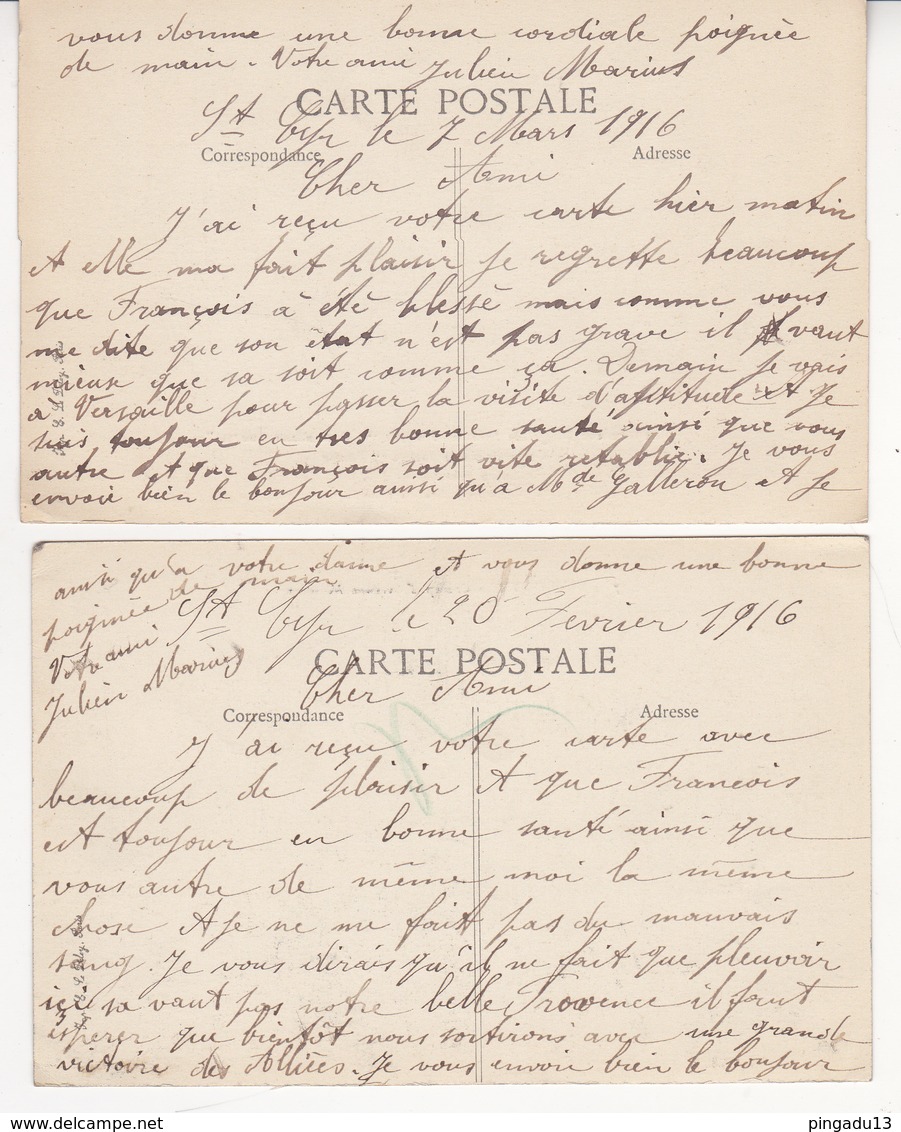 vous donne une bonne cordiale poignée
de main. Votre ami Julien Marius
CARTE POSTALE
St Cyr le 7 Mars 1916
Correspondance
Adresse
Cher Ami
J'ai reçu votre carte hier matin
et elle ma fait plaisir je regrette beaucoup
que François à été blessé mais comme vous
me dite que son état n'est pas grave il vaut
mieux que sa soit comme ça. Demain je vais
a Versaille pour passer la visite d'aptitude et je
suis toujour en tres bonne santé ainsi que vous
autre et que François soit vite retablie. Je vous
envoie bien le bonjour ainsi qu'à Mde Galleron et je
ainsi qu'a votre dame et vous donne une bonne
poignée de main
Votre ami
Julien Marius
St Cyr le 20 Fevrier 1916
CARTE POSTALE
Cher Ami
Correspondance
Adresse
J'ai reçu votre carte avec
beaucoup de plaisir et que Francois
est toujour en bonne santé ainsi que
vous autre de même moi la même
chose et je ne me fait pas du mauvais
sang. Je vous dirais qu'il ne fait que pleuvoir
ici sa vaut pas notre belle Provence il faut
esperer que bientôt nous sortirons avec une grande
victoire des Alliées. Je vous envoie bien le bonjour
pingadu13